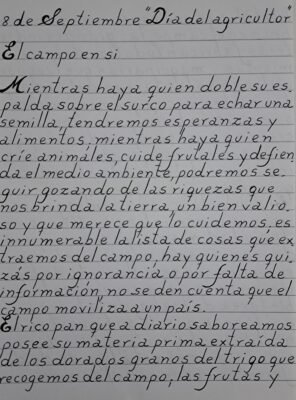 8 de Septiembre "Día del agricultor"
El campo en si
Mientras haya quien doble su es.
palda sobre el surco para echar una
semilla, tendremos esperanzas y
alimentos, mientras haya quien
críe animales, cuide frutales y defien
da el medio ambiente, podremos se.
guir gozando de las riquezas que
nos brinda la tierra, un bien valio.
so y que merece que lo cuidemos, es
innumerable la lista de cosas que ex
traemos del campo, hay quienes qui.
zás por ignorancia o por falta de
información, no se den cuenta que el
campo moviliza a un país.
El rico pan que a diario saboreamos
posee su materia prima extraída
de los dorados granos del trigo que
recogemos del campo, las frutas y